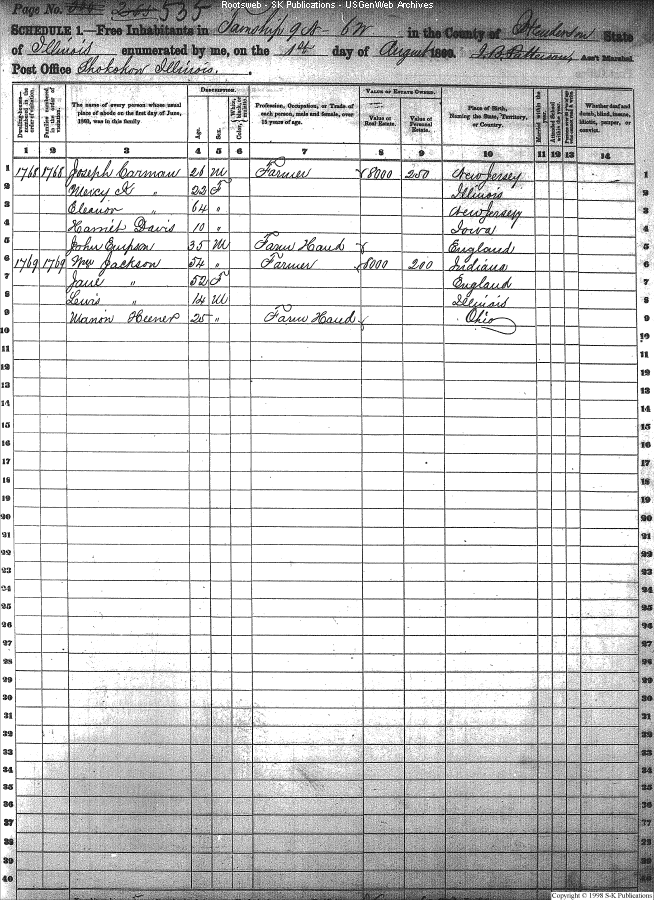 Rootsweb - SK Publications - USGenWeb Archives
Page No. 535
SCHEDULE 1.—Free Inhabitants in Township 9 N - 6 W in the County of Henderson State
of Illinois enumerated by me, on the 1st day of August 1860. J. B. Patterson, Ass't Marshal.
Post Office Shokokon Illinois.
Dwelling-houses—numbered in the order of visitation.
Families numbered in the order of visitation.
The name of every person whose usual place of abode on the first day of June, 1860, was in this family.
DESCRIPTION.
Age.
Sex.
Color, { White, black, or mulatto.
Profession, Occupation, or Trade of each person, male and female, over 15 years of age.
VALUE OF ESTATE OWNED.
Value of Real Estate.
Value of Personal Estate.
Place of Birth, Naming the State, Territory, or Country.
Married within the year.
Whether deaf and dumb, blind, insane, idiotic, pauper, or convict.
1 2 3 4 5 6 7 8 9 10 11 12 13 14
1 1768 1768 Joseph Carman 26 M Farmer 8000 250 New Jersey 1
2 Mercy A " 22 F Illinois 2
3 Eleanor " 64 " New Jersey 3
4 Harriet Davis 10 " Iowa 4
5 John Empson 35 M Farm Hand England 5
6 1769 1769 Wm Jackson 54 " Farmer 8000 200 Indiana 6
7 Jane " 52 F England 7
8 Lewis " 14 M Illinois 8
9 Marion Heener 25 " Farm Hand Ohio 9
10 10
11 11
12 12
13 13
14 14
15 15
16 16
17 17
18 18
19 19
20 20
21 21
22 22
23 23
24 24
25 25
26 26
27 27
28 28
29 29
30 30
31 31
32 32
33 33
34 34
35 35
36 36
37 37
38 38
39 39
40 40
Copyright © 1998 S-K Publications